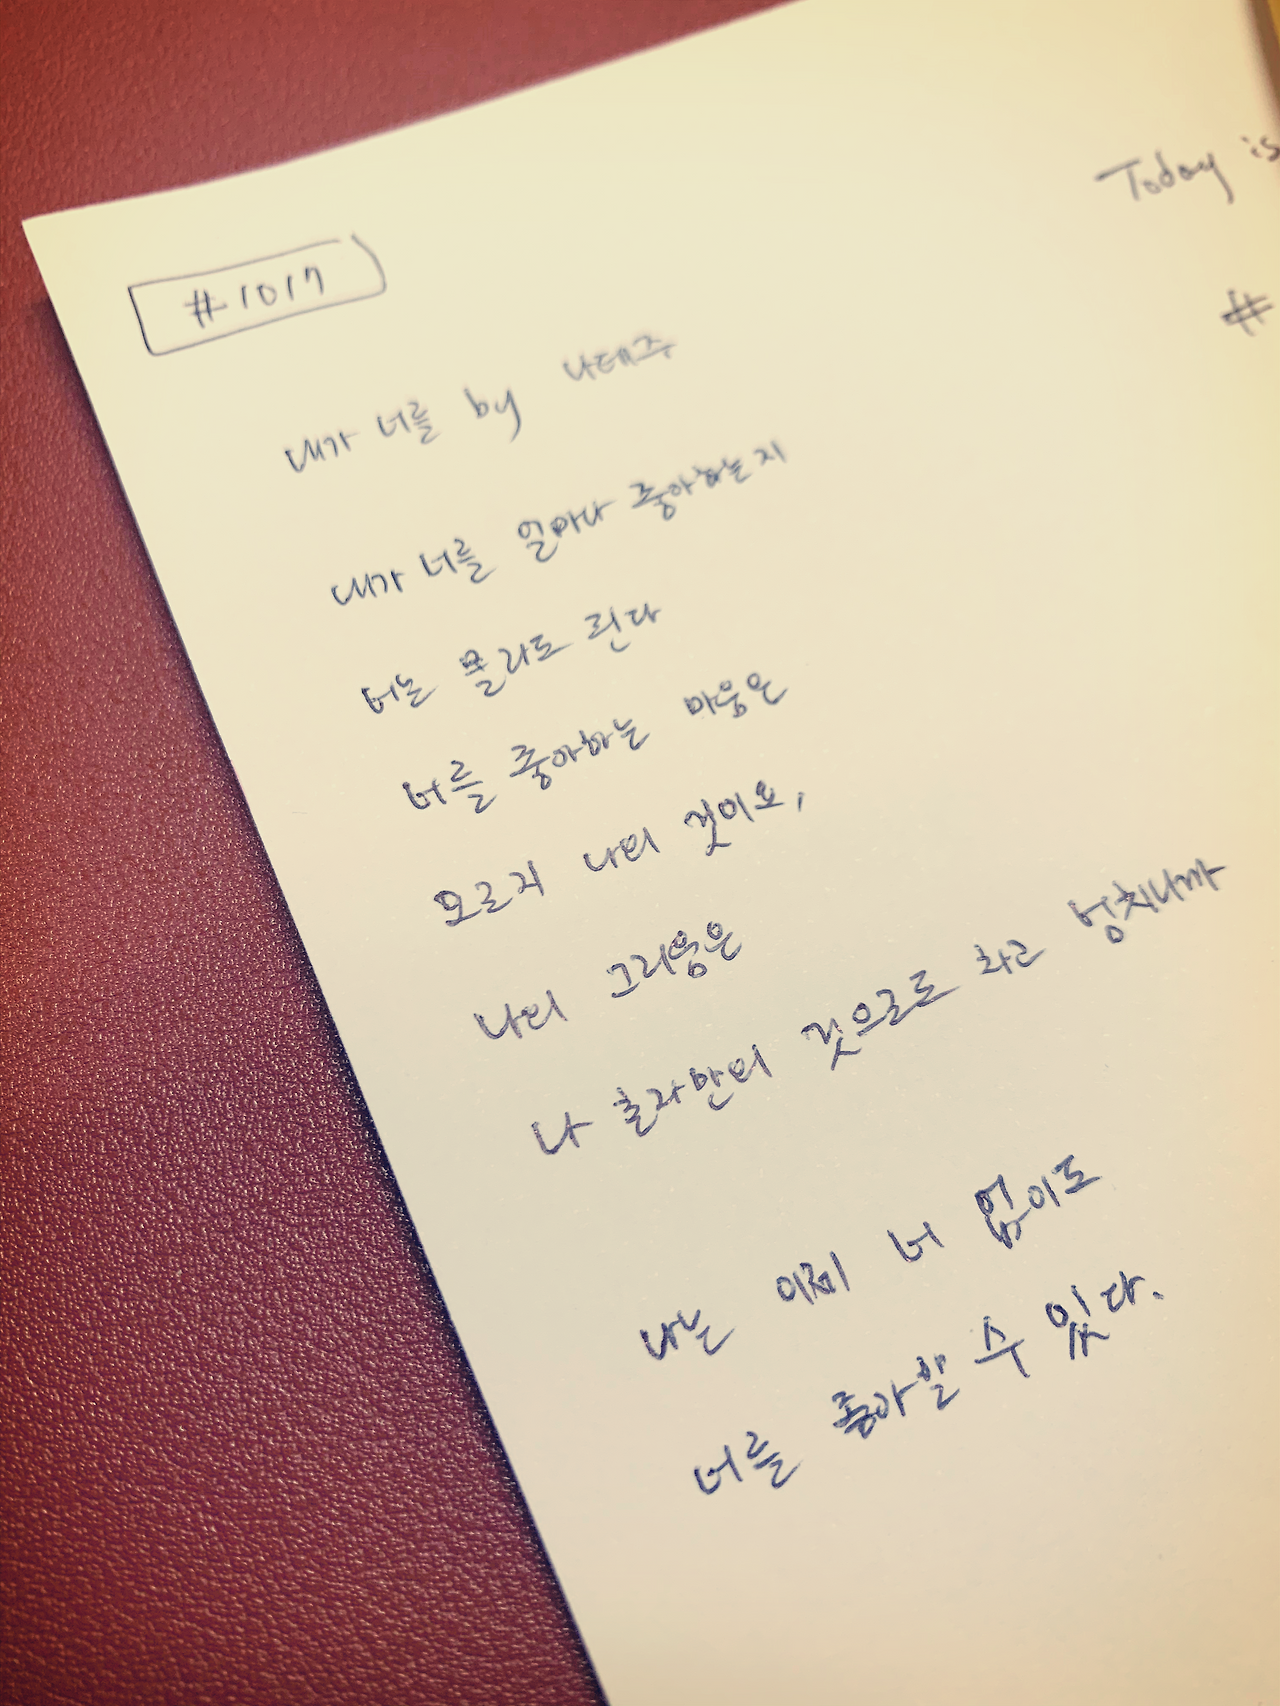 Today is
#1017
#
내가 너를 by 나태주
내가 너를 얼마나 좋아하는지
너는 몰라도 된다
너를 좋아하는 마음은
오로지 나의 것이요,
나의 그리움은
나 혼자만의 것으로도 차고 넘치니까
나는 이제 너 없이도
너를 좋아할 수 있다.